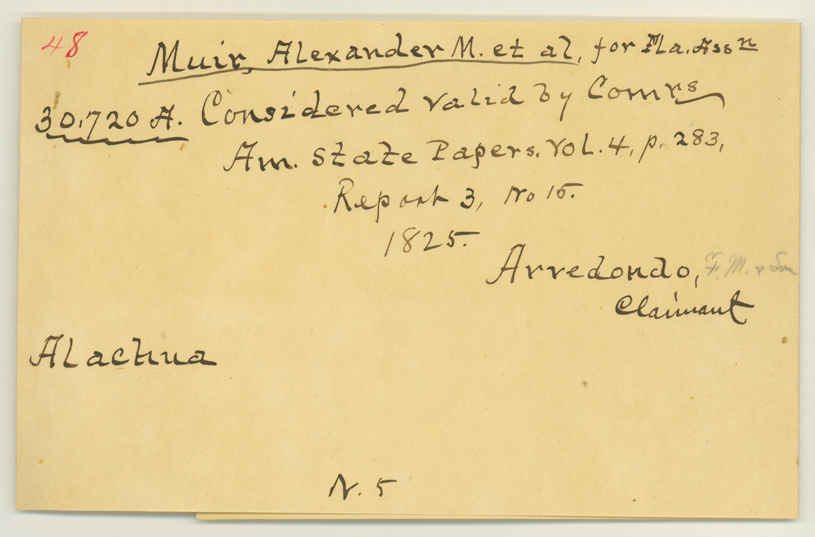 48
Muir, Alexander M. et al, for Fla. Assn
30,720 A. Considered valid by Comrs
Am. State Papers. Vol. 4, p. 283,
Report 3, No 15.
1825.
Arredondo, F. M. & Son
Claimant
Alachua
N. 5